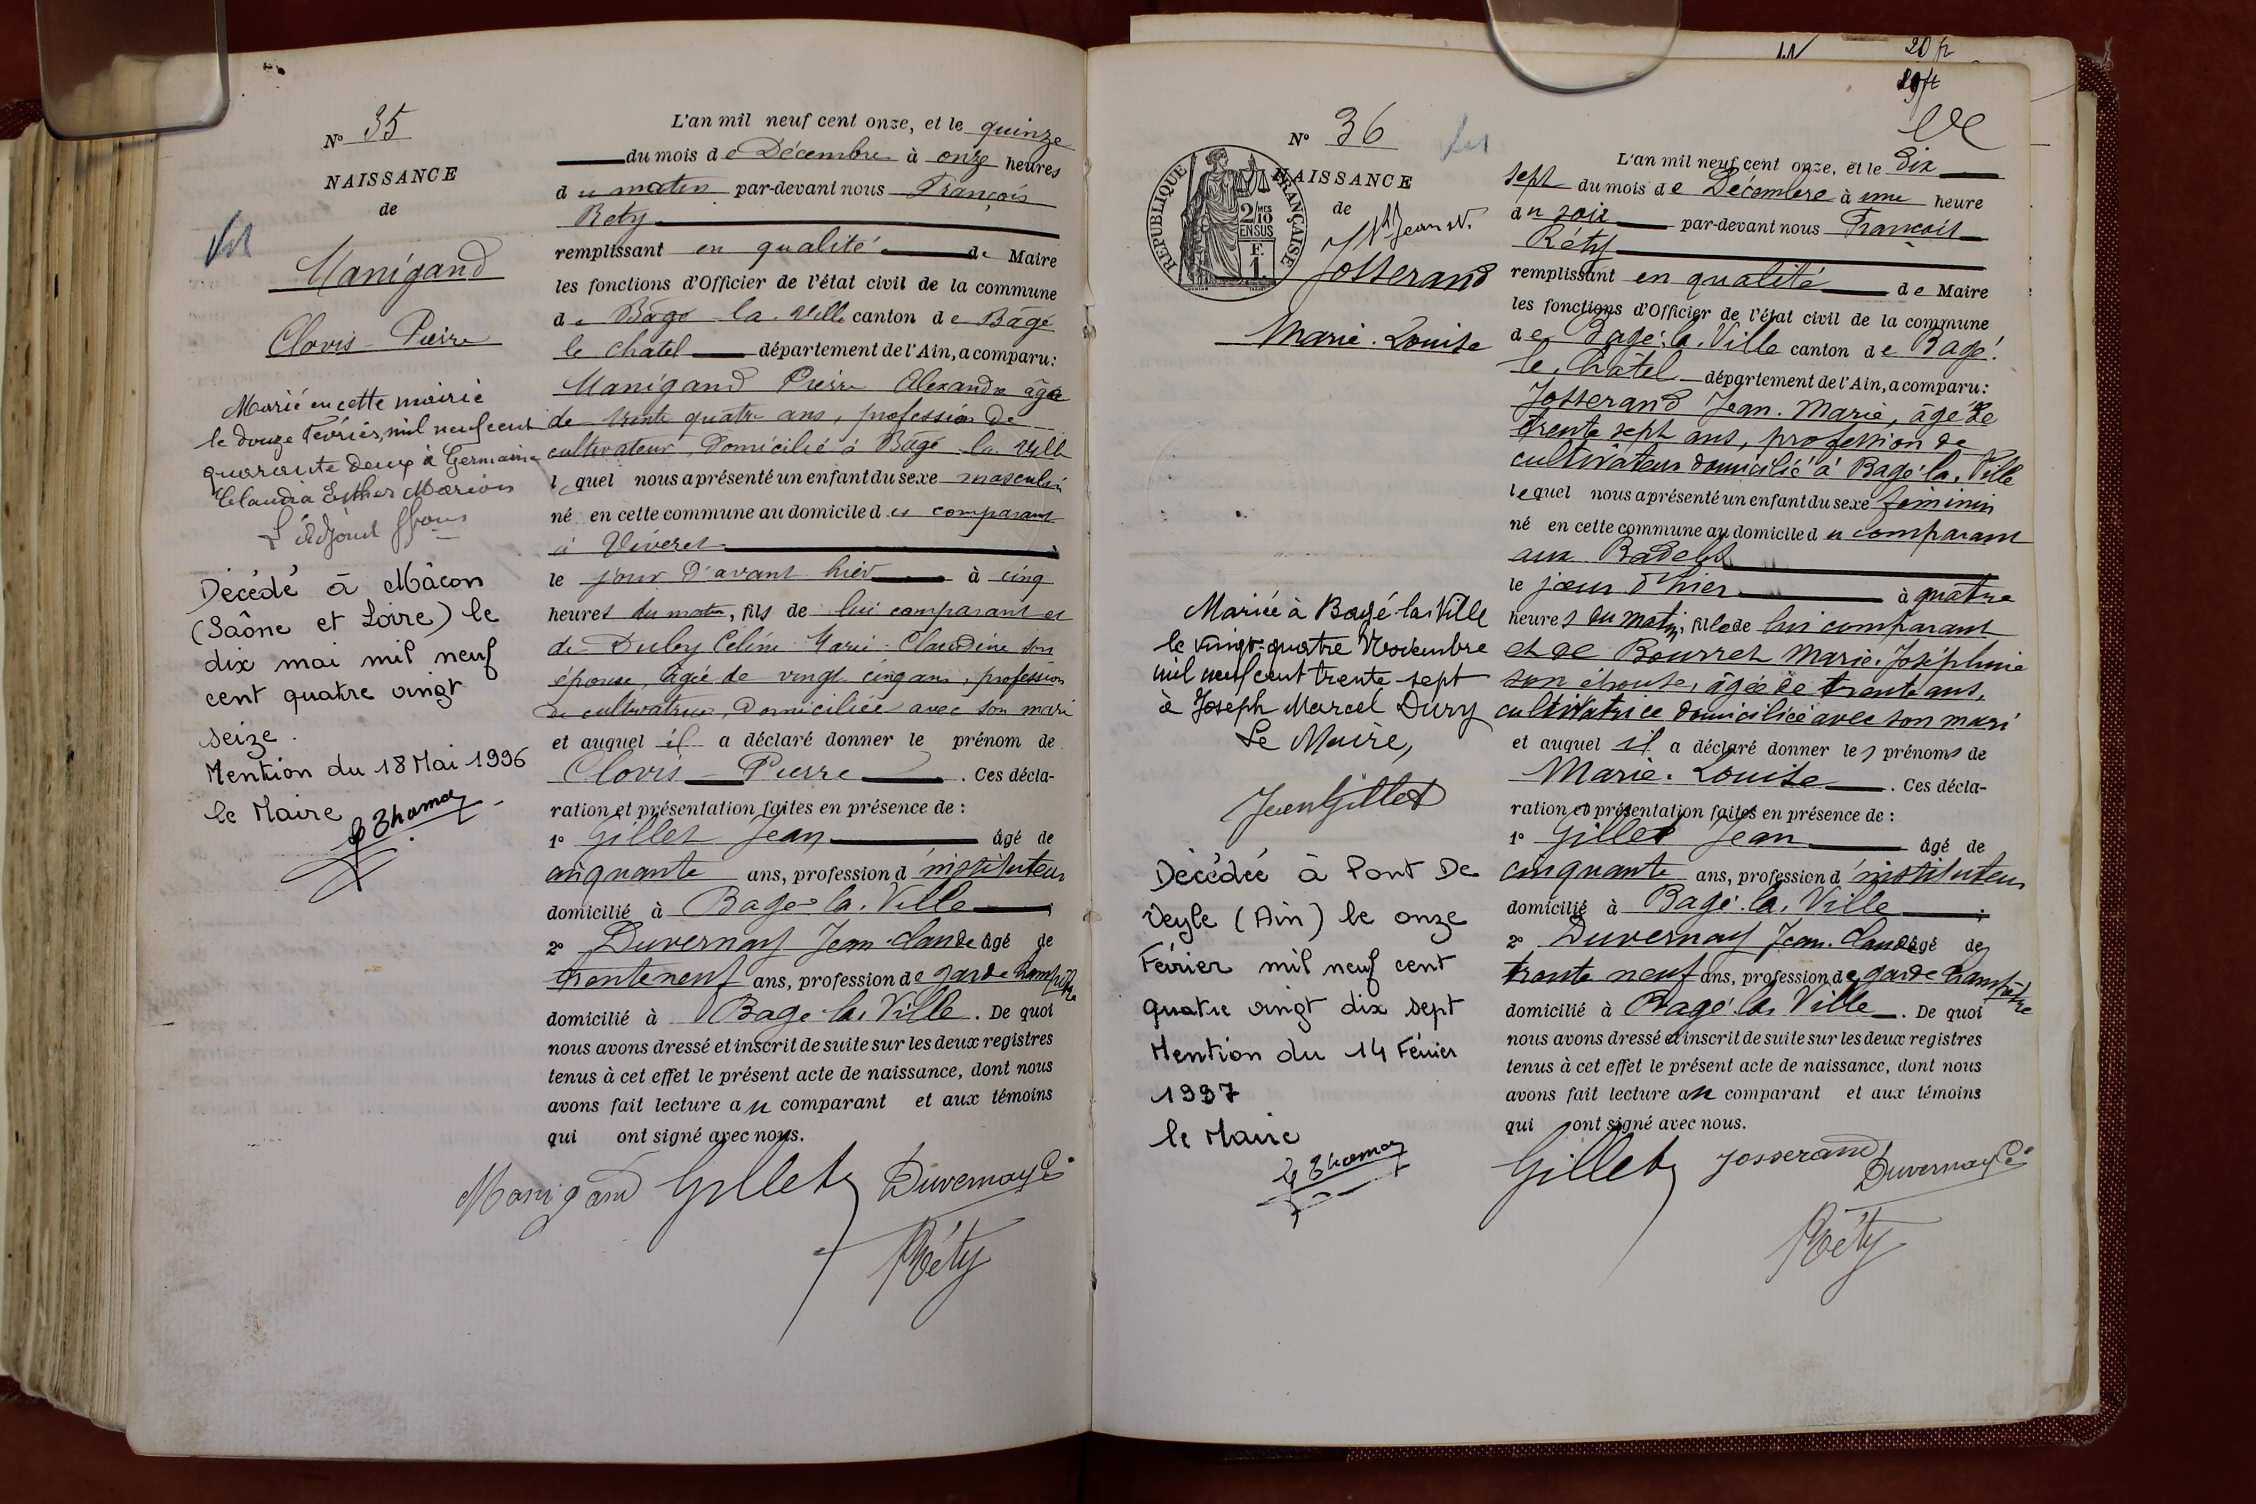 N° 35
NAISSANCE
de
Manigand
Clovis Pierre
Marié en cette mairie
le douze Février, mil neuf cent
quarante deux à Germaine
Claudia Esther Marion
L'adjoint
Décédé à Mâcon
(Saône et Loire) le
dix mai mil neuf
cent quatre vingt
seize.
Mention du 18 Mai 1996
le Maire
L'an mil neuf cent onze, et le quinze
du mois de Décembre à onze heures
du matin par-devant nous François
Rety
remplissant en qualité de Maire
les fonctions d'Officier de l'état civil de la commune
de Bâgé la Ville canton de Bâgé
le chatel département de l'Ain, a comparu:
Manigand Pierre Alexandre âgé
de trente quatre ans, profession de
cultivateur, domicilié à Bâgé la Ville
lequel nous a présenté un enfant du sexe masculin
né en cette commune au domicile du comparant
à
le jour d'avant hier à cinq
heures du matin, fils de lui comparant et
de Duby Céline Marie Claudine son
épouse, âgée de vingt cinq ans, profession
de cultivatrice, domiciliée avec son mari
et auquel il a déclaré donner le prénom de
Clovis Pierre. Ces décla-
ration et présentation faites en présence de :
1° Gillet Jean âgé de
cinquante ans, profession d'instituteur
domicilié à Bagé-la-Ville ;
2° Duvernay Jean-Claude âgé de
trente neuf ans, profession de garde champêtre
domicilié à Bagé-la-Ville. De quoi
nous avons dressé et inscrit de suite sur les deux registres
tenus à cet effet le présent acte de naissance, dont nous
avons fait lecture au comparant et aux témoins
qui ont signé avec nous.
Manigand Gillet Duvernay
Réty
20 fr
N° 36
REPUBLIQUE FRANÇAISE
2/10 MES
EN SUS
F.
1.
NAISSANCE
de
Josserand
Marie-Louise
Mariée à Bagé-la-Ville
le vingt-quatre Novembre
mil neuf cent trente-sept
à Joseph Marcel Dury
Le Maire,
Jean Gillet
Décédée à Pont De
Veyle (Ain) le onze
Février mil neuf cent
quatre vingt dix sept
Mention du 14 Février
1997
le Maire
L'an mil neuf cent onze, et le dix
sept du mois de Décembre à une heure
du soir par-devant nous François
Réty
remplissant en qualité de Maire
les fonctions d'Officier de l'état civil de la commune
de Bagé-la-Ville canton de Bagé-
le-Châtel département de l'Ain, a comparu:
Josserand Jean-Marie, âgé de
trente sept ans, profession de
cultivateur domicilié à Bagé-la-Ville
lequel nous a présenté un enfant du sexe féminin
né en cette commune au domicile du comparant
aux
le jour d'hier à quatre
heures du matin, fille de lui comparant
et de Bourret Marie-Joséphine
son épouse, âgée de trente ans,
cultivatrice domiciliée avec son mari
et auquel il a déclaré donner les prénoms de
Marie-Louise. Ces décla-
ration et présentation faites en présence de :
1° Gillet Jean âgé de
cinquante ans, profession d'instituteur
domicilié à Bagé-la-Ville ;
2° Duvernay Jean-Claude âgé de
trente neuf ans, profession de garde champêtre
domicilié à Bagé-la-Ville. De quoi
nous avons dressé et inscrit de suite sur les deux registres
tenus à cet effet le présent acte de naissance, dont nous
avons fait lecture au comparant et aux témoins
qui ont signé avec nous.
Gillet Josserand
Duvernay
Réty